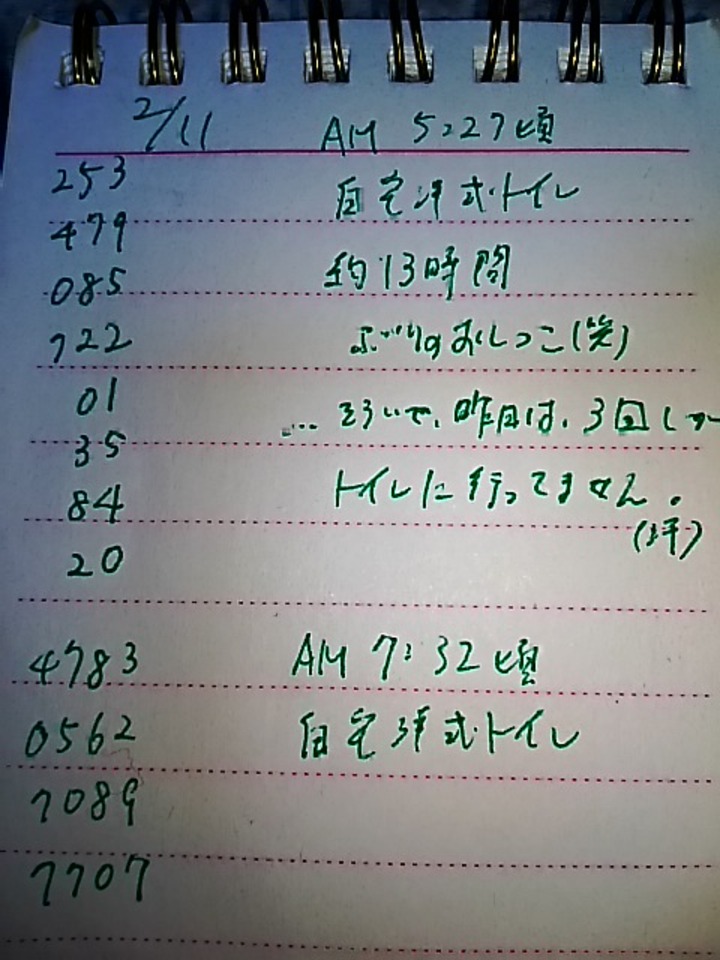 2/11 AM 5:27頃
253 自宅洋式トイレ
479
085 約13時間
722 ぶりのおしっこ(笑)
01 ... そういや、昨日は、3回しか
35
84 トイレに行ってません。
(汗)
20
4783 AM 7:32頃
0562 自宅洋式トイレ
7089
7707